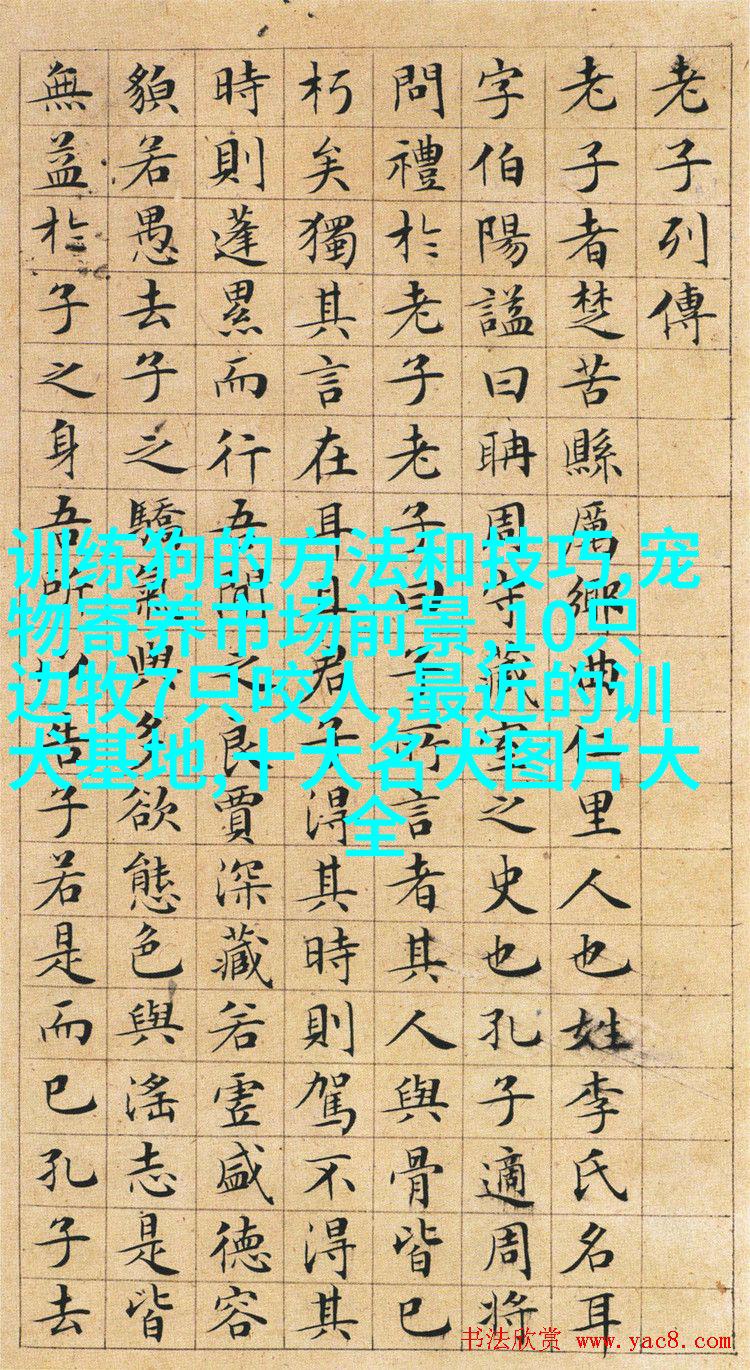 老子列傳
老子者楚苦縣厲鄉曲仁里人也姓李氏名耳
字伯陽謚曰聃周守藏室之史也孔子適周將
問禮於老子老子曰子所言者其人與骨皆已
朽矣獨其言在耳且君子得其時則駕不得其
時則蓬累而行吾聞之良賈深藏若虛盛德容
貌若愚去子之驕氣與多欲態色與滛志是皆
無益於子之身吾所以告子若是而已孔子去
训练狗的方法和技巧,宠
物寄养市场前景,10只
边牧7只咬人,最近的训
犬基地,十大名犬图片大
全
书法欣赏 www.yac8.com